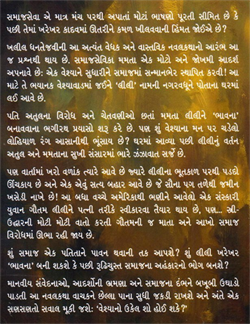 સમાજસેવા એ માત્ર મંચ પરથી અપાતાં મોટાં ભાષણો પૂરતી સીમિત છે કે
પછી તેમાં ખરેખર કાદવમાં ઊતરીને કમળ ખીલવવાની હિંમત હોઈએ છે?
ખલીલ ધનતેજવીની આ અત્યંત વેધક અને વાસ્તવિક નવલકથાનો આરંભ આ
જ પ્રશ્નથી થાય છે. સમાજસેવિકા મમતા એક મોટો અને જોખમી આદર્શ
અપનાવે છે: એક વેશ્યાને સુધારીને સમાજમાં સન્માનભેર સ્થાપિત કરવી! આ
માટે તે ભયાનક વેશ્યાવાડમાં જઈને 'લીલી' નામની નગરવધૂને પોતાના ઘરમાં
લઈ આવે છે.
પતિ અતુલના વિરોધ અને ચેતવણીઓ છતાં મમતા લીલીને 'ભાવના'
બનાવવાના ભગીરથ પ્રયાસો શરૂ કરે છે. પણ શું વેશ્યાના મન પર ચડેલો
લોહિયાળ રંગ આસાનીથી ભૂંસાય છે? ઘરમાં આવ્યા પછી લીલીનું વર્તન
અતુલ અને મમતાના સુખી સંસારમાં ભારે ઝંઝાવાત સર્જે છે.
પણ વાર્તામાં ખરો વળાંક ત્યારે આવે છે જ્યારે લીલીના ભૂતકાળ પરથી પડદો
ઊંચકાય છે અને એક એવું સત્ય બહાર આવે છે જે સૌના પગ તળેથી જમીન
ખસેડી નાખે છે! આ બધા વચ્ચે અમેરિકાથી ભણીને આવેલો એક સંસ્કારી
યુવાન ગૌતમ લીલીને પત્ની તરીકે સ્વીકારવા તૈયાર થાય છે, પણ... સ્ત્રી-
ઉદ્ધારની મોટી મોટી વાતો કરતી ગૌતમની જ માતા અને આખો સમાજ
વિરોધમાં ઊભા રહી જાય છે.
શું સમાજ એક પતિતાને પાવન થવાની તક આપશે? શું લીલી ખરેખર
'ભાવના' બની શકશે કે પછી રૂઢિચુસ્ત સમાજના અહંકારનો ભોગ બનશે?
માનવીય સંવેદનાઓ, આદર્શોની ભ્રમણા અને સમાજના દંભને બખૂબી ઉઘાડો
પાડતી આ નવલકથા વાચકને છેલ્લા પાના સુધી જકડી રાખશે અને અંતે એક
સણસણતો સવાલ મૂકી જશે: 'વેશ્યાનો ઉકેલ શો હોઈ શકે?'